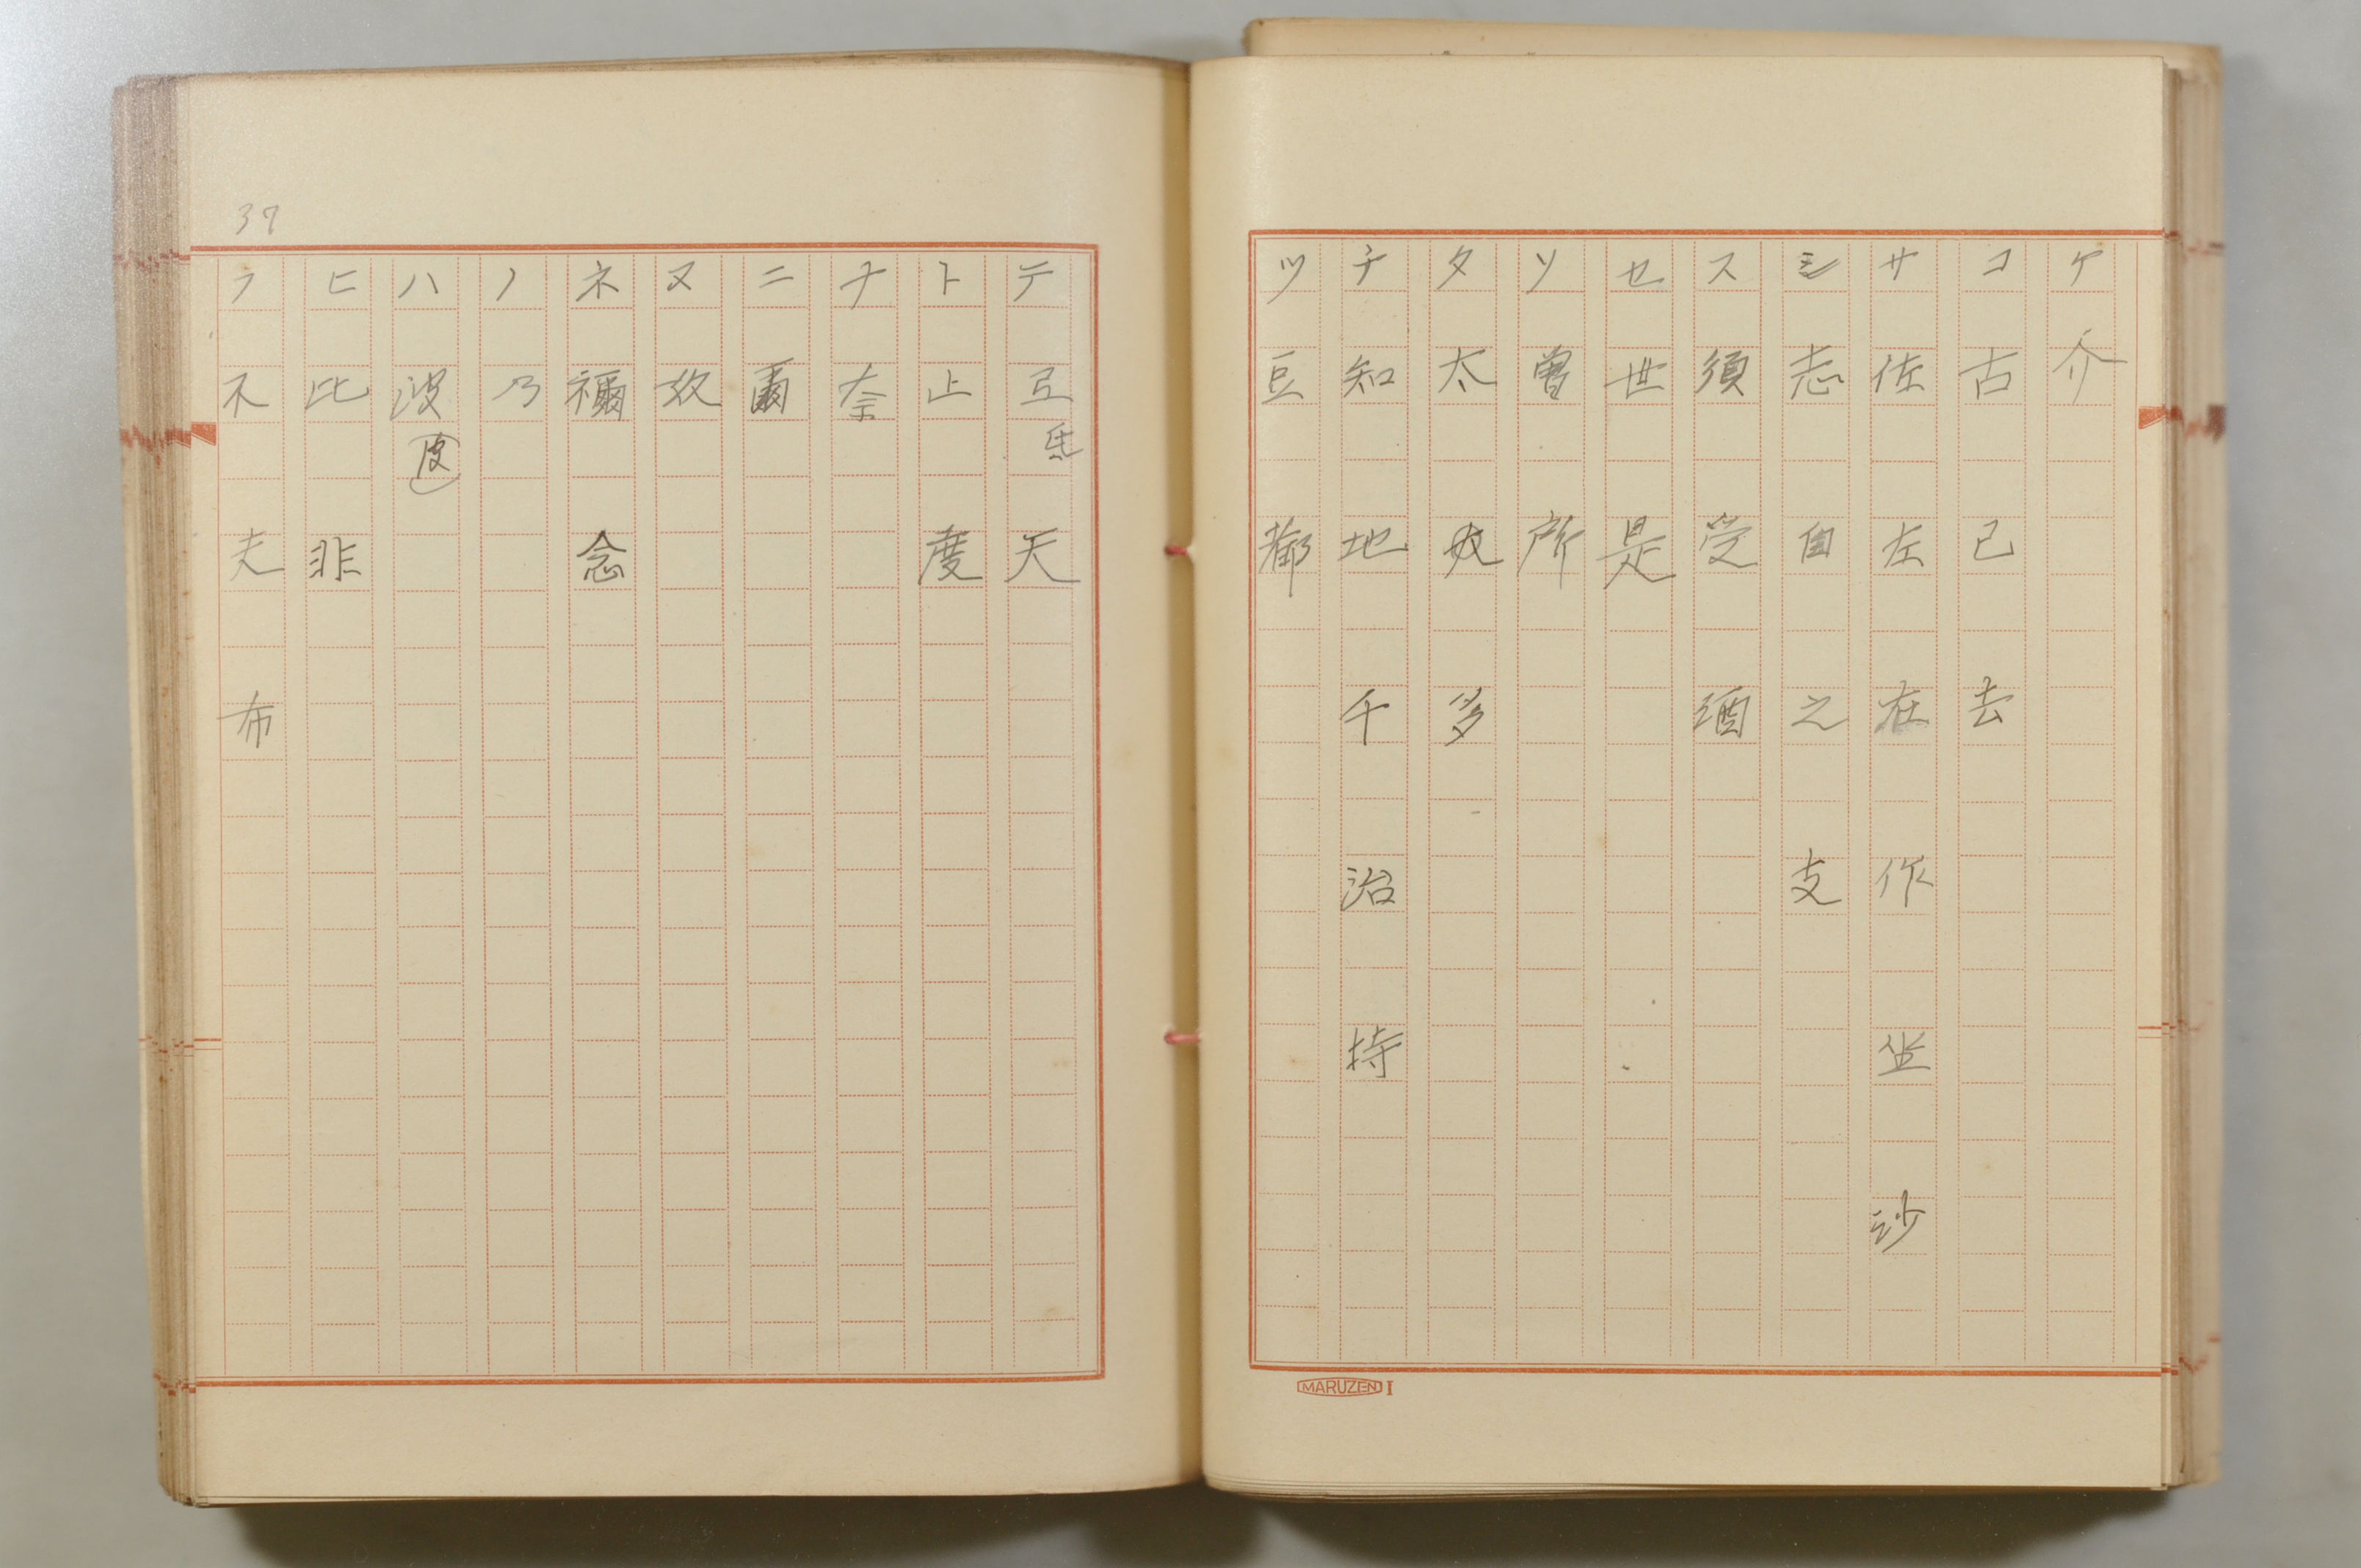 ケ 介
コ 古 己 去
サ 佐 左 在 作 坐 沙
シ 志 自 之 支
ス 須 受 酒
セ 世 是
ソ 曽 所
タ 太 多
チ 知 地 千 治 持
ツ 豆 都
MARUZEN I
テ 弖 天
ト 止 度
ナ 奈
ニ 爾
ヌ 奴
ネ 禰 念
ノ 乃
ハ 波 皮
ヒ 比 非
フ 不 夫 布
37